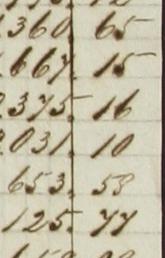 360. 65
667. 15
375. 16
031. 10
653. 53
125. 77